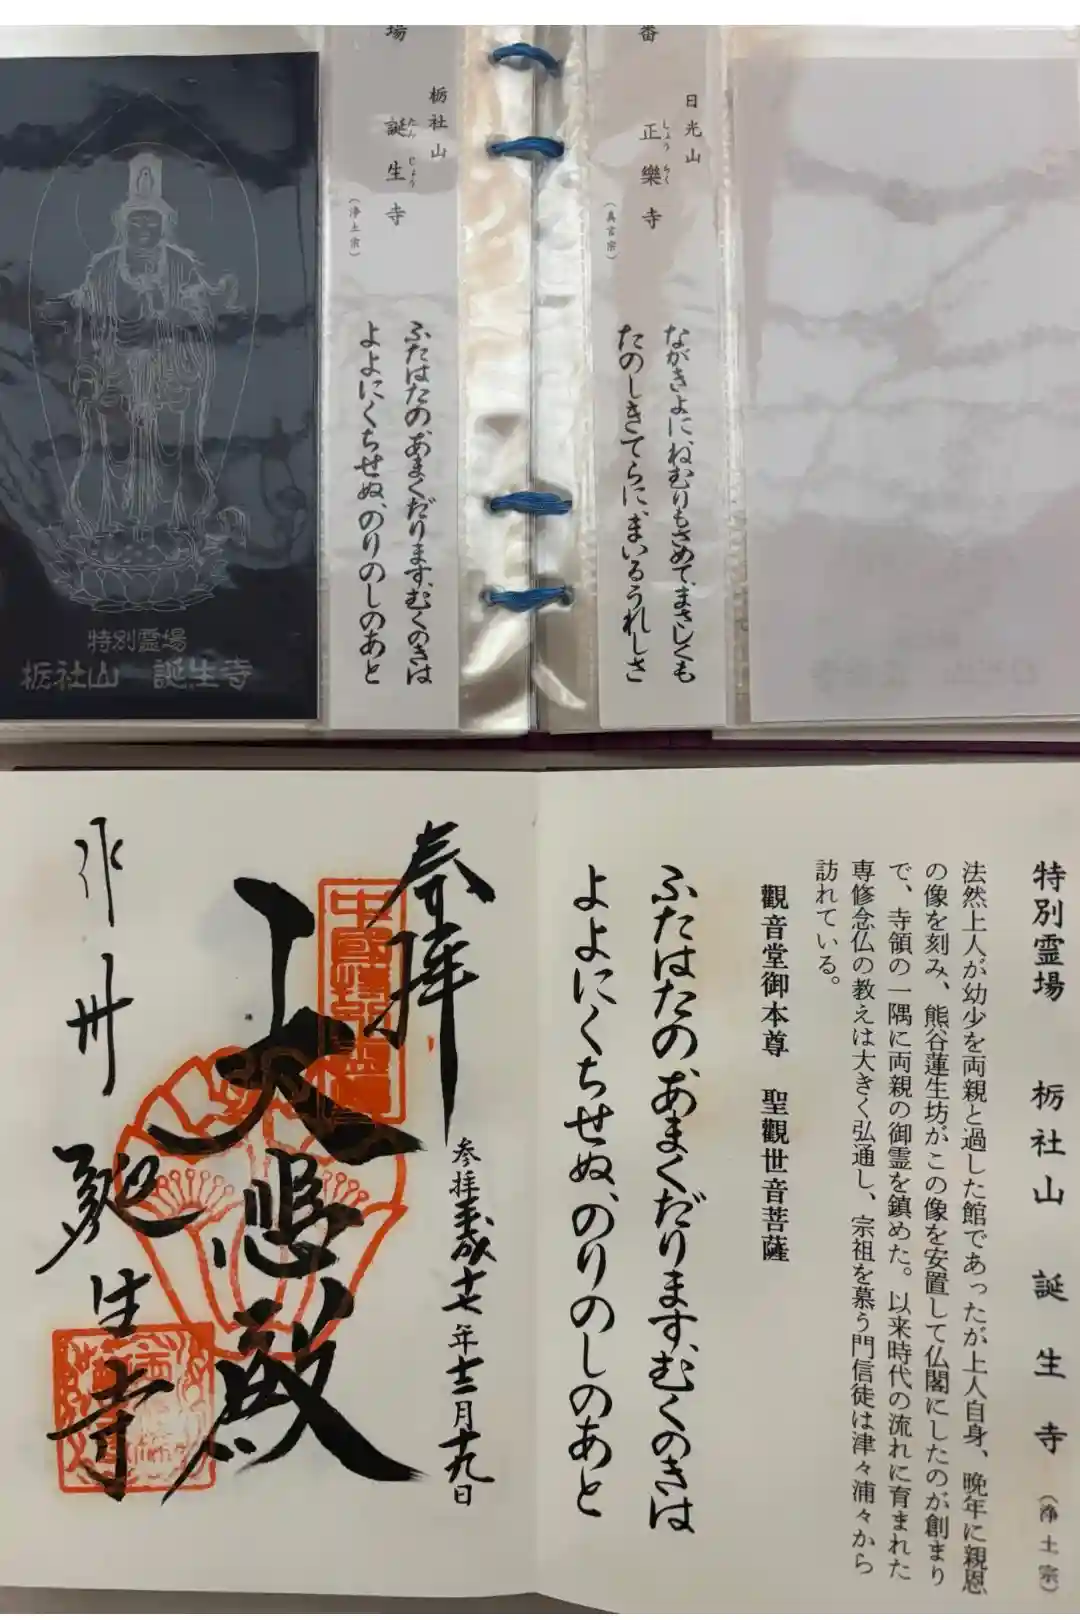 番
日光山
正樂寺
しょうらく
（真言宗）
ながきよに、ねむりもさめて、まさしくも
たのしきてらに、まいるうれしさ
場
栃社山
誕生寺
たんじょう
（浄土宗）
ふたはたの、あまくだります、むくのきは
よよにくちせぬ、のりのしのあと
特別霊場
栃社山 誕生寺
特別霊場 栃社山 誕生寺（浄土宗）
法然上人が幼少を両親と過した館であったが上人自身、晩年に親恩
の像を刻み、熊谷蓮生坊がこの像を安置して仏閣にしたのが創まり
で、寺領の一隅に両親の御霊を鎮めた。以来時代の流れに育まれた
専修念仏の教えは大きく弘通し、宗祖を慕う門信徒は津々浦々から
訪れている。
觀音堂御本尊 聖觀世音菩薩
ふたはたの、あまくだります、むくのきは
よよにくちせぬ、のりのしのあと
奉拝
参拝平成十七年十二月十九日
大悲殿
作州 誕生寺